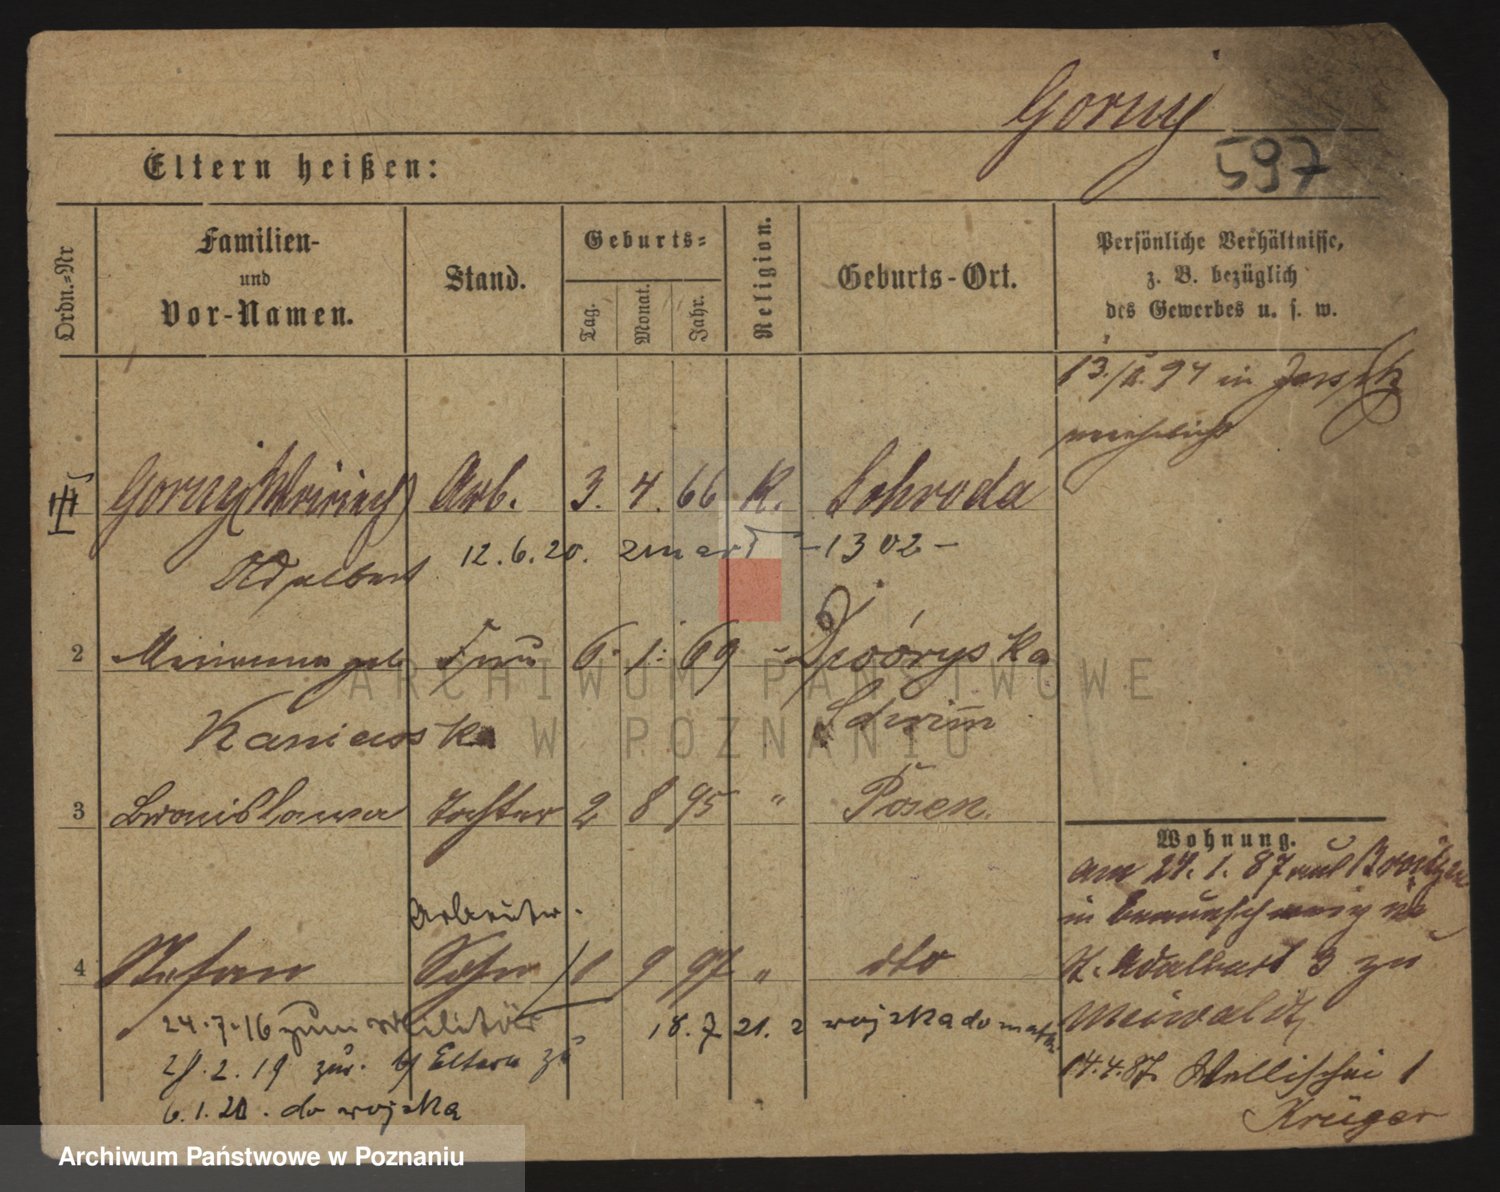 Gorny
597
Eltern heißen:
Ordn.-Nr
Familien- und Vor-Namen.
Stand.
Geburts-
Tag.
Monat.
Jahr.
Religion.
Geburts-Ort.
Persönliche Verhältnisse,
z. B. bezüglich
des Gewerbes u. s. w.
in
Gorny Arb. 3. 4. 66 K. Schroda
Adalbert 12. 6. 20. zmarł -1302-
2 Marianna geb Frau 6. 1. 69
Schwim
3 Bronislawa Tochter 2 8 95 " Posen
Wohnung.
am 24. 1. 87
in
Arbeiter.
4 Stefan Sohn 9 97 " dto
St. Adalbert 3 zu
24.7.16 zum Militär 18. 7 21. z wojska do
2. 19 zur. Eltern zu
14.4.87. Wallischei 1
6.1.20. do wojska
Krüger
ARCHIWUM PAŃSTWOWE
W POZNANIU
Archiwum Państwowe w Poznaniu